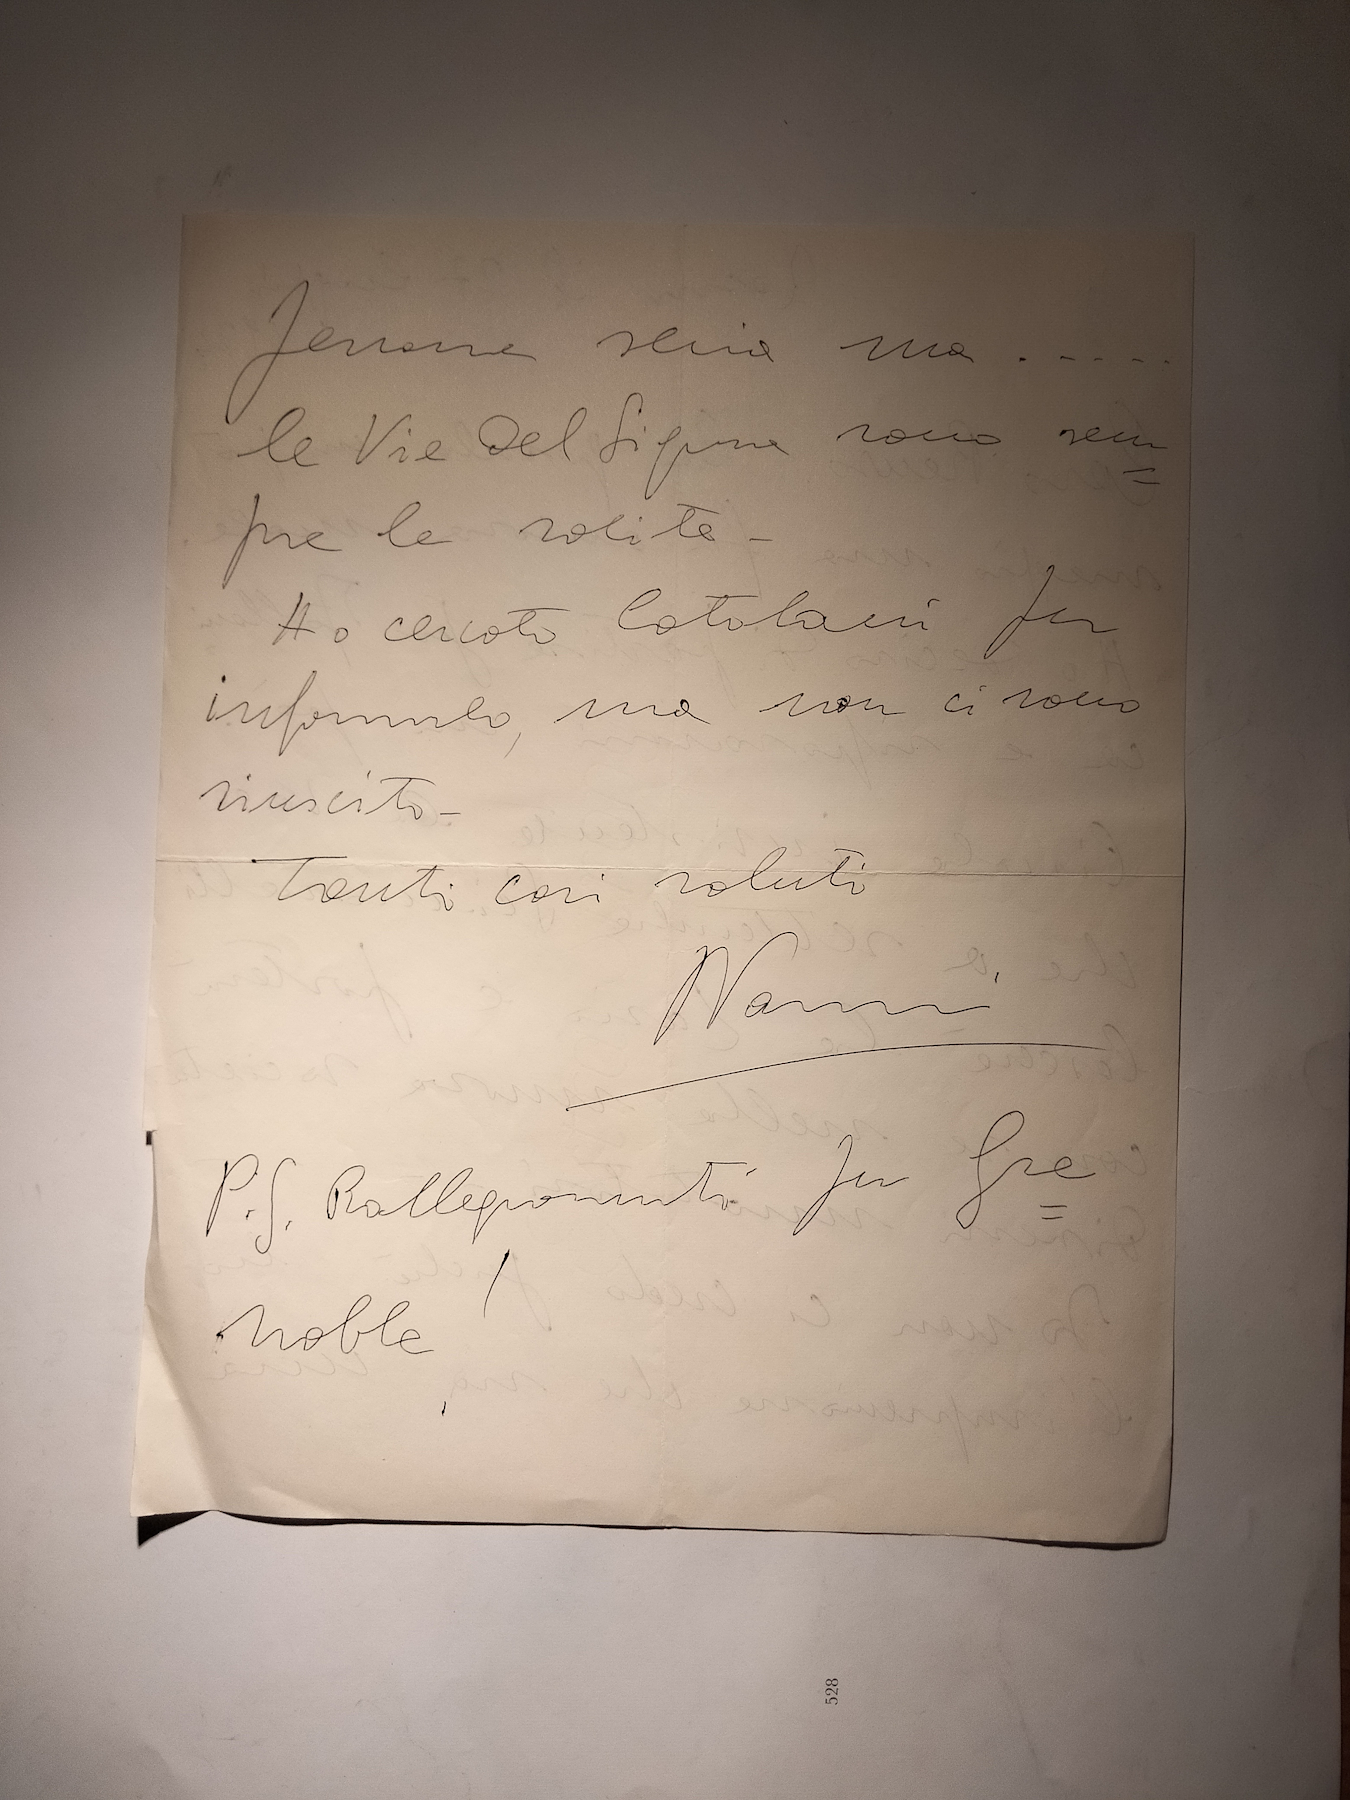 persona seria ma . . . . .
le Vie Del Signore sono sem=
pre le solite -
Ho cercato Catolani per
informarlo, ma non ci sono
riuscito -
Tanti cari saluti
Nanni
P.S. Rallegramenti per Gre=
noble !
528